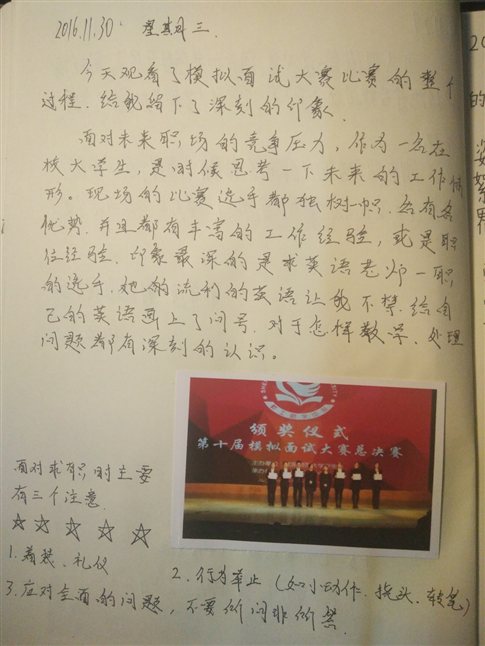 2016.11.30. 星期三.
今天观看了模拟面试大赛比赛的整个
过程.给我留下了深刻的印象.
面对未来职场的竞争压力,作为一名在
校大学生,是时候思考一下未来的工作情
形。现场的比赛选手都独树一帜.各有各
优势.并且都有丰富的工作经验,或是职
位经验.印象最深的是求英语老师一职
的选手.她的流利的英语让我不禁给自
己的英语画上了问号.对于怎样教学、处理
问题都有深刻的认识。
颁奖仪式
第十届模拟面试大赛总决赛
面对求职时主要
有三个注意.
1.着装、礼仪
2.行为举止(如小动作.挠头.转笔)
3.应对全面的问题,不要所问非所答.